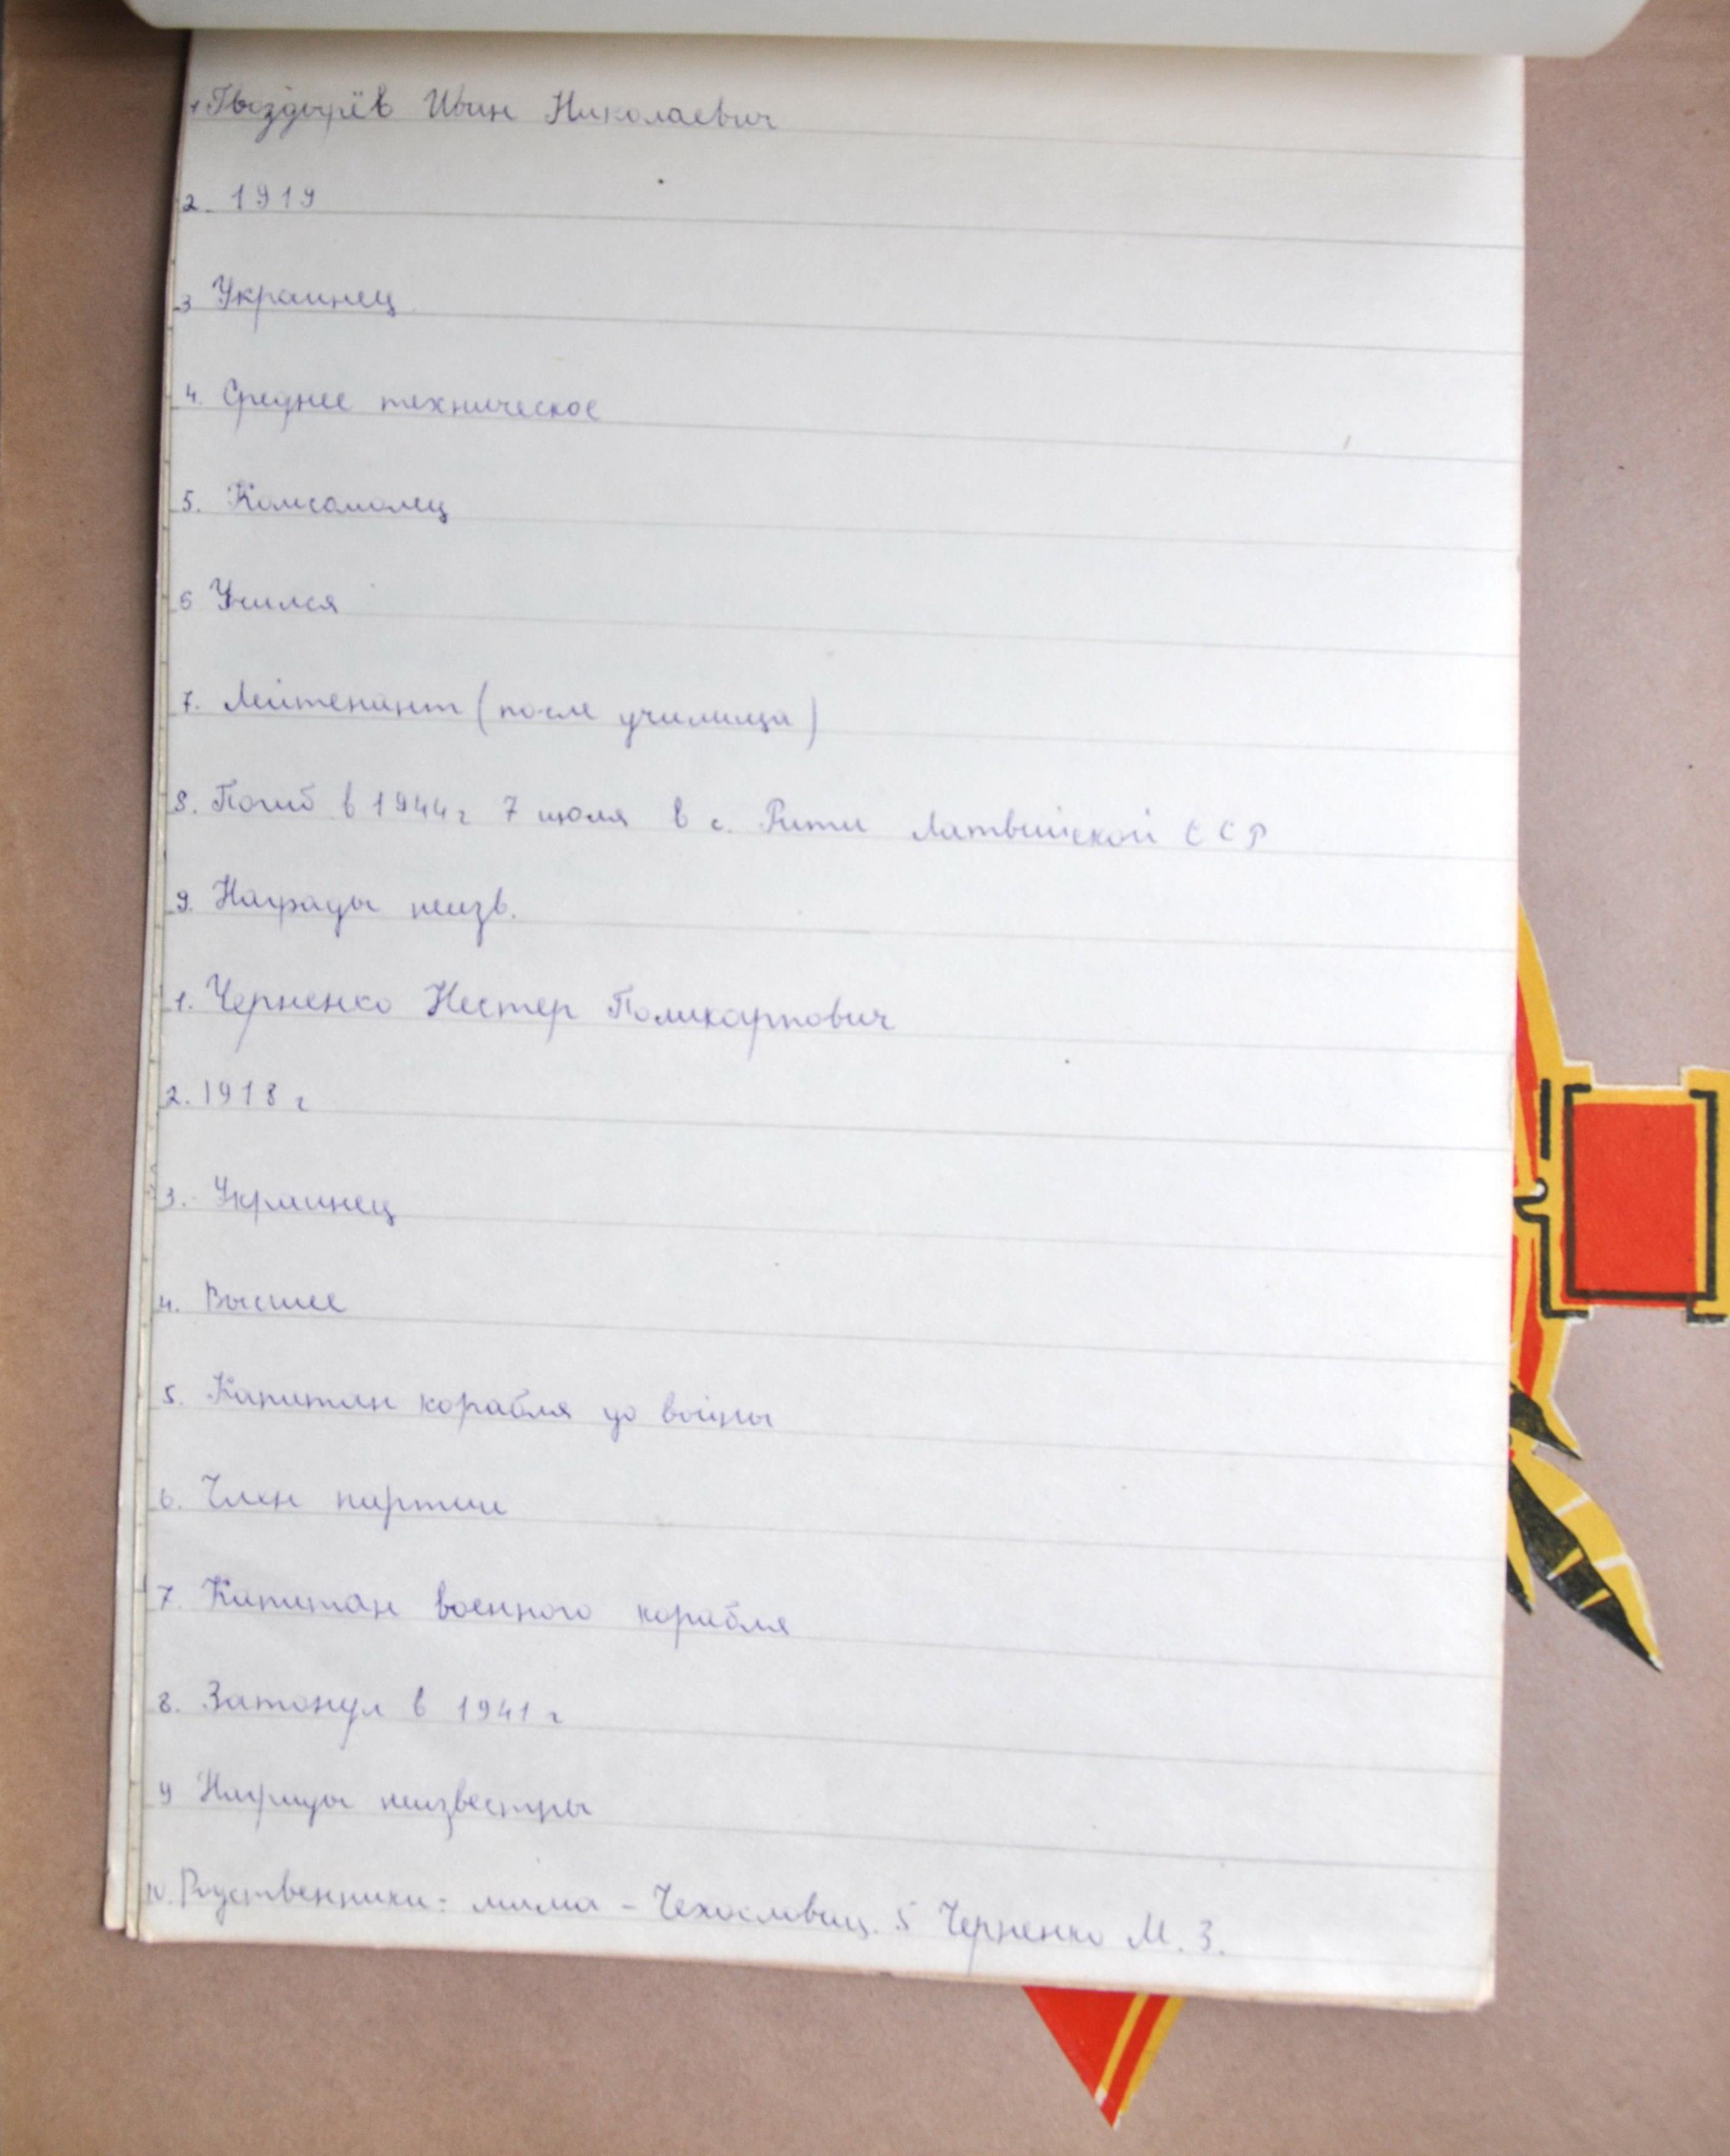 1 Гвоздырёв Иван Николаевич
2. 1919
3 Украинец
4. Среднее техническое
5. Комсомолец
6 Учился
7. Лейтенант (после училища)
8. Погиб в 1944 г 7 июля в с. Рити Латвийской ССР
9. Награды неизв.
1. Черненко Нестер Поликарпович
2. 1918 г
3. Украинец
4. Высшее
5. Капитан корабля до войны
6. Член партии
7. Капитан военного корабля
8. Затонул в 1941 г
9 Награды неизвестны
10. Родственники: мама - Чехословац. 5 Черненко М. З.